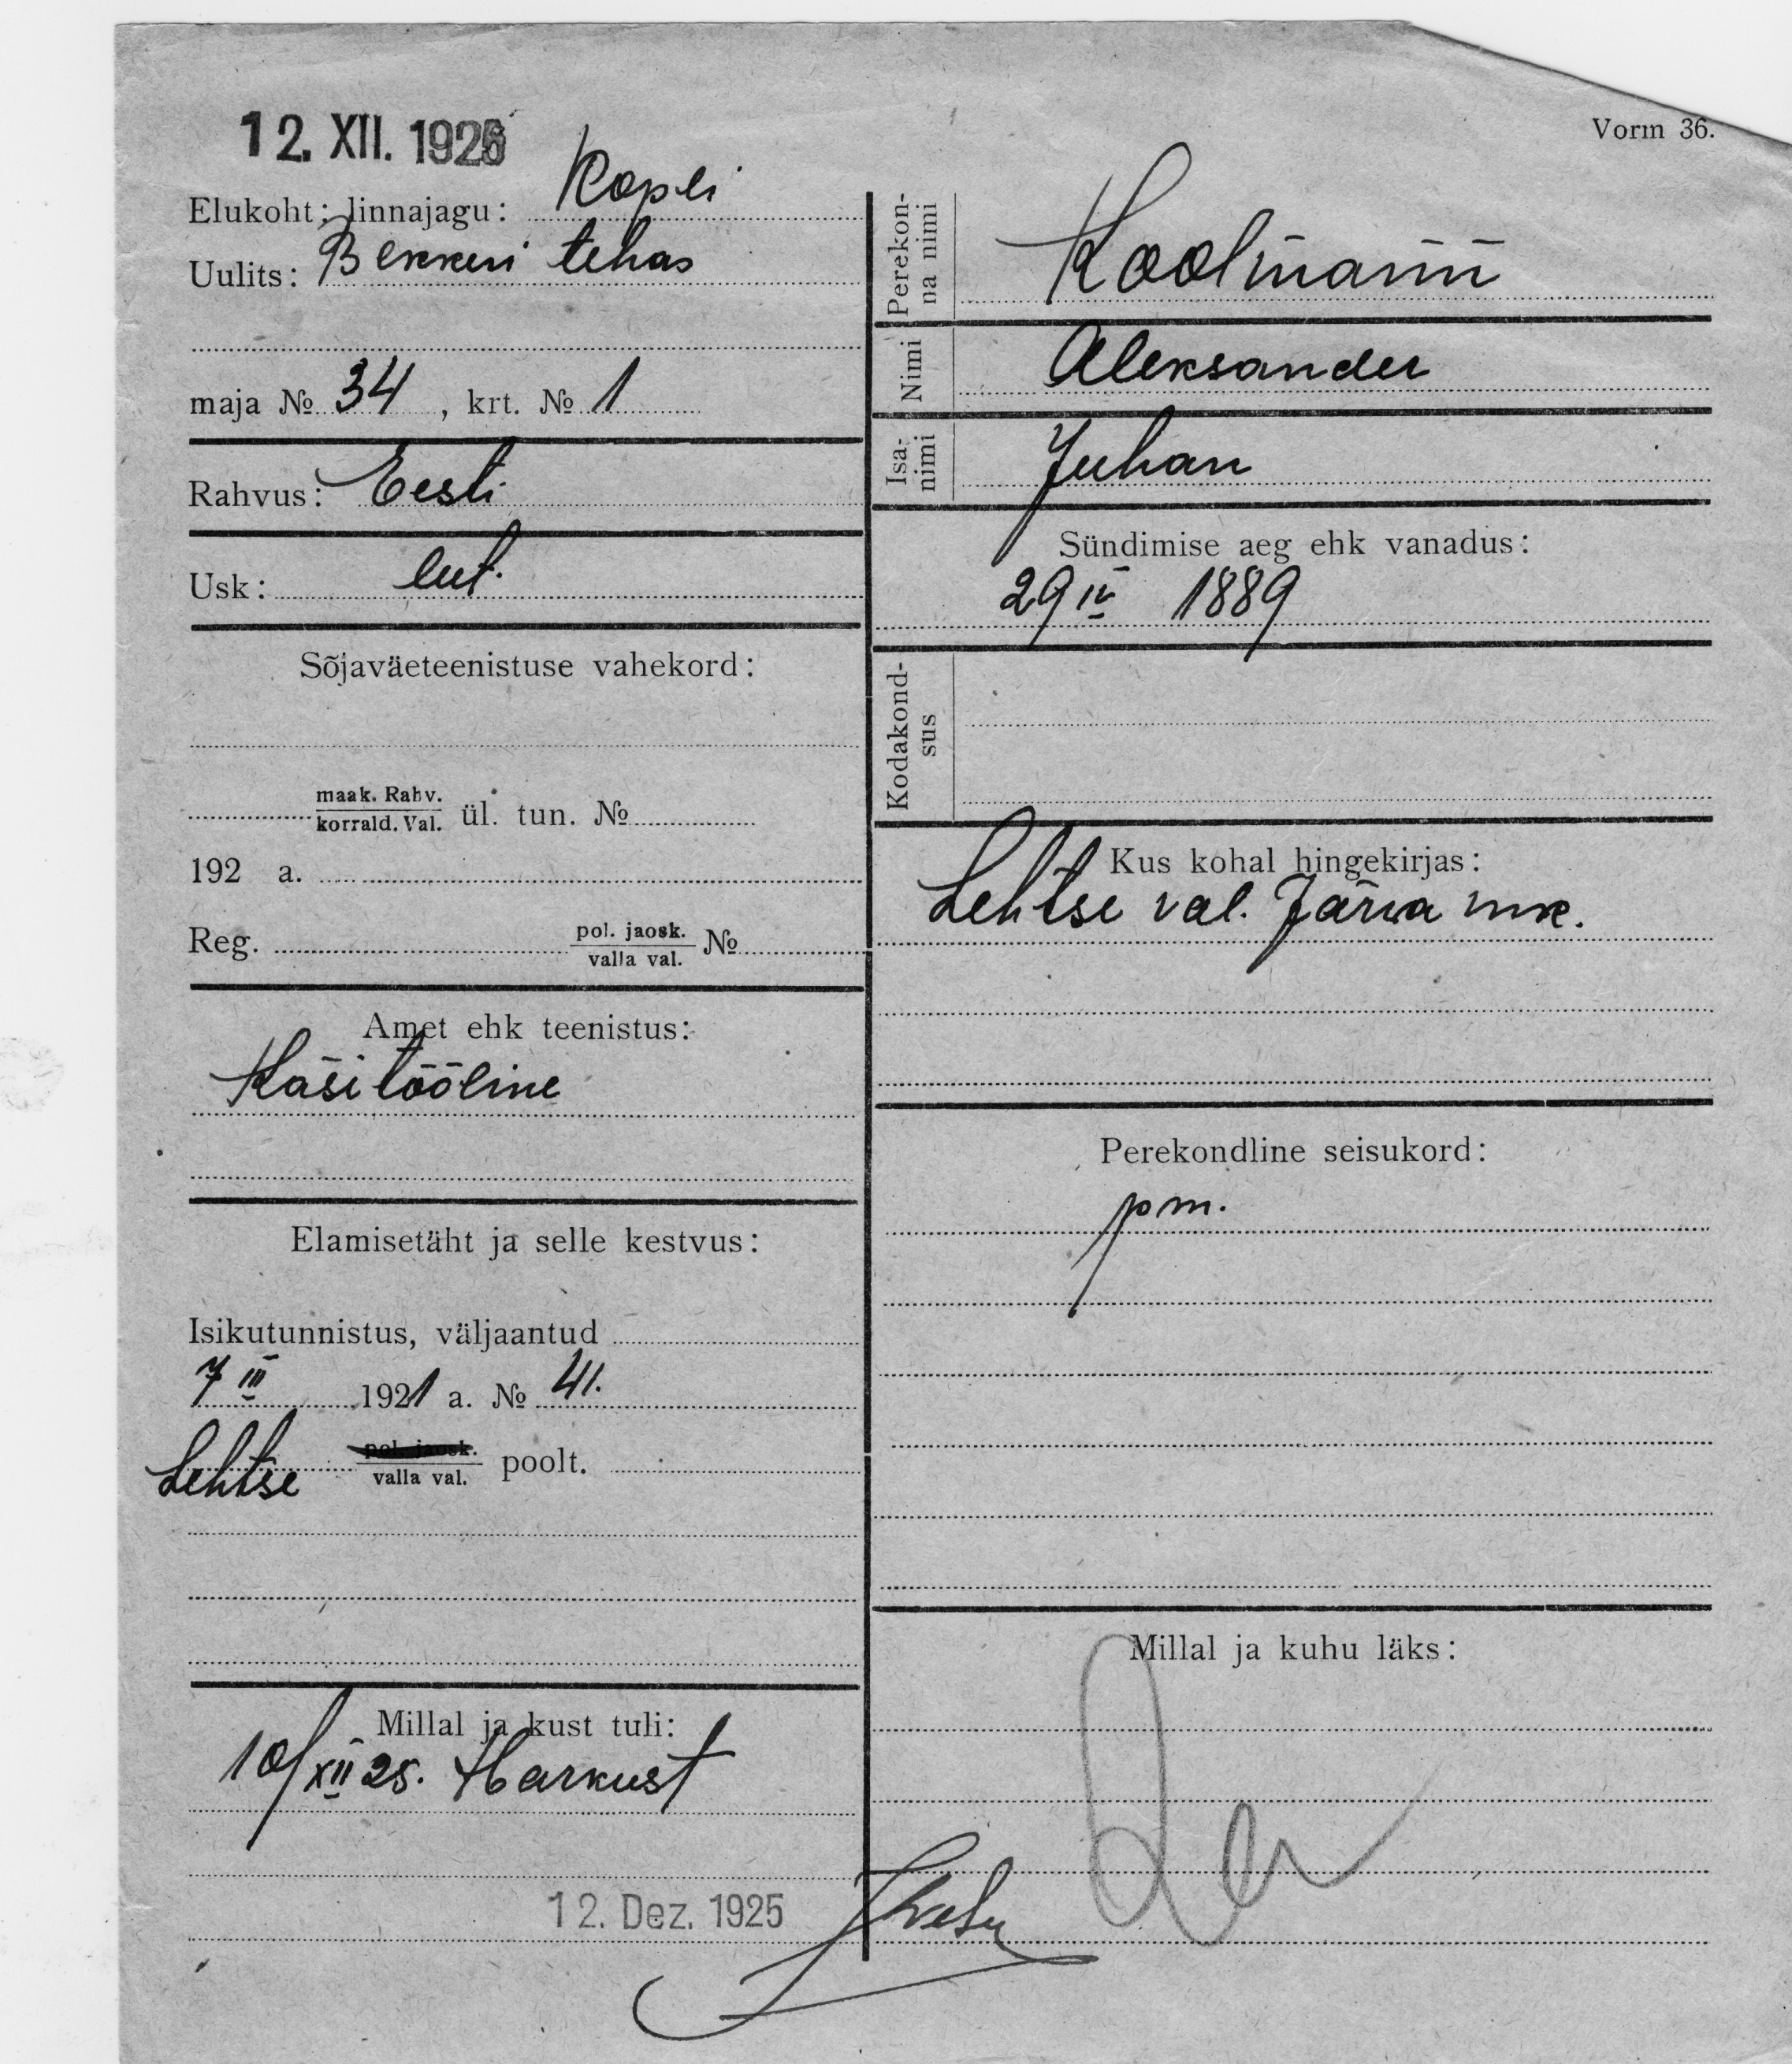 12. XII. 1925
Vorm 36.
Elukoht: linnajagu: Kopli
Uulits: Bekkeri tehas
maja № 34, krt. № 1
Rahvus: Eesti
Usk: lut.
Sõjaväeteenistuse vahekord:
maak. Rahv.
korrald. Val. ül. tun. №
192 a.
Reg. pol. jaosk. №
valla val.
Amet ehk teenistus:
Käsitööline
Elamisetäht ja selle kestvus:
Isikutunnistus, väljaantud
7 III 1921 a. № 41.
Lehtse pol. jaosk. poolt.
valla val.
Millal ja kust tuli:
10/XII 25. Harkust
12. Dez. 1925
Perekon-
na nimi
Koolmann
Nimi Aleksander
Isa-
nimi
Juhan
Sündimise aeg ehk vanadus:
29 IV 1889
Kodakond-
sus
Kus kohal hingekirjas:
Lehtse val. Järva mk.
Perekondline seisukord:
pm.
Millal ja kuhu läks: